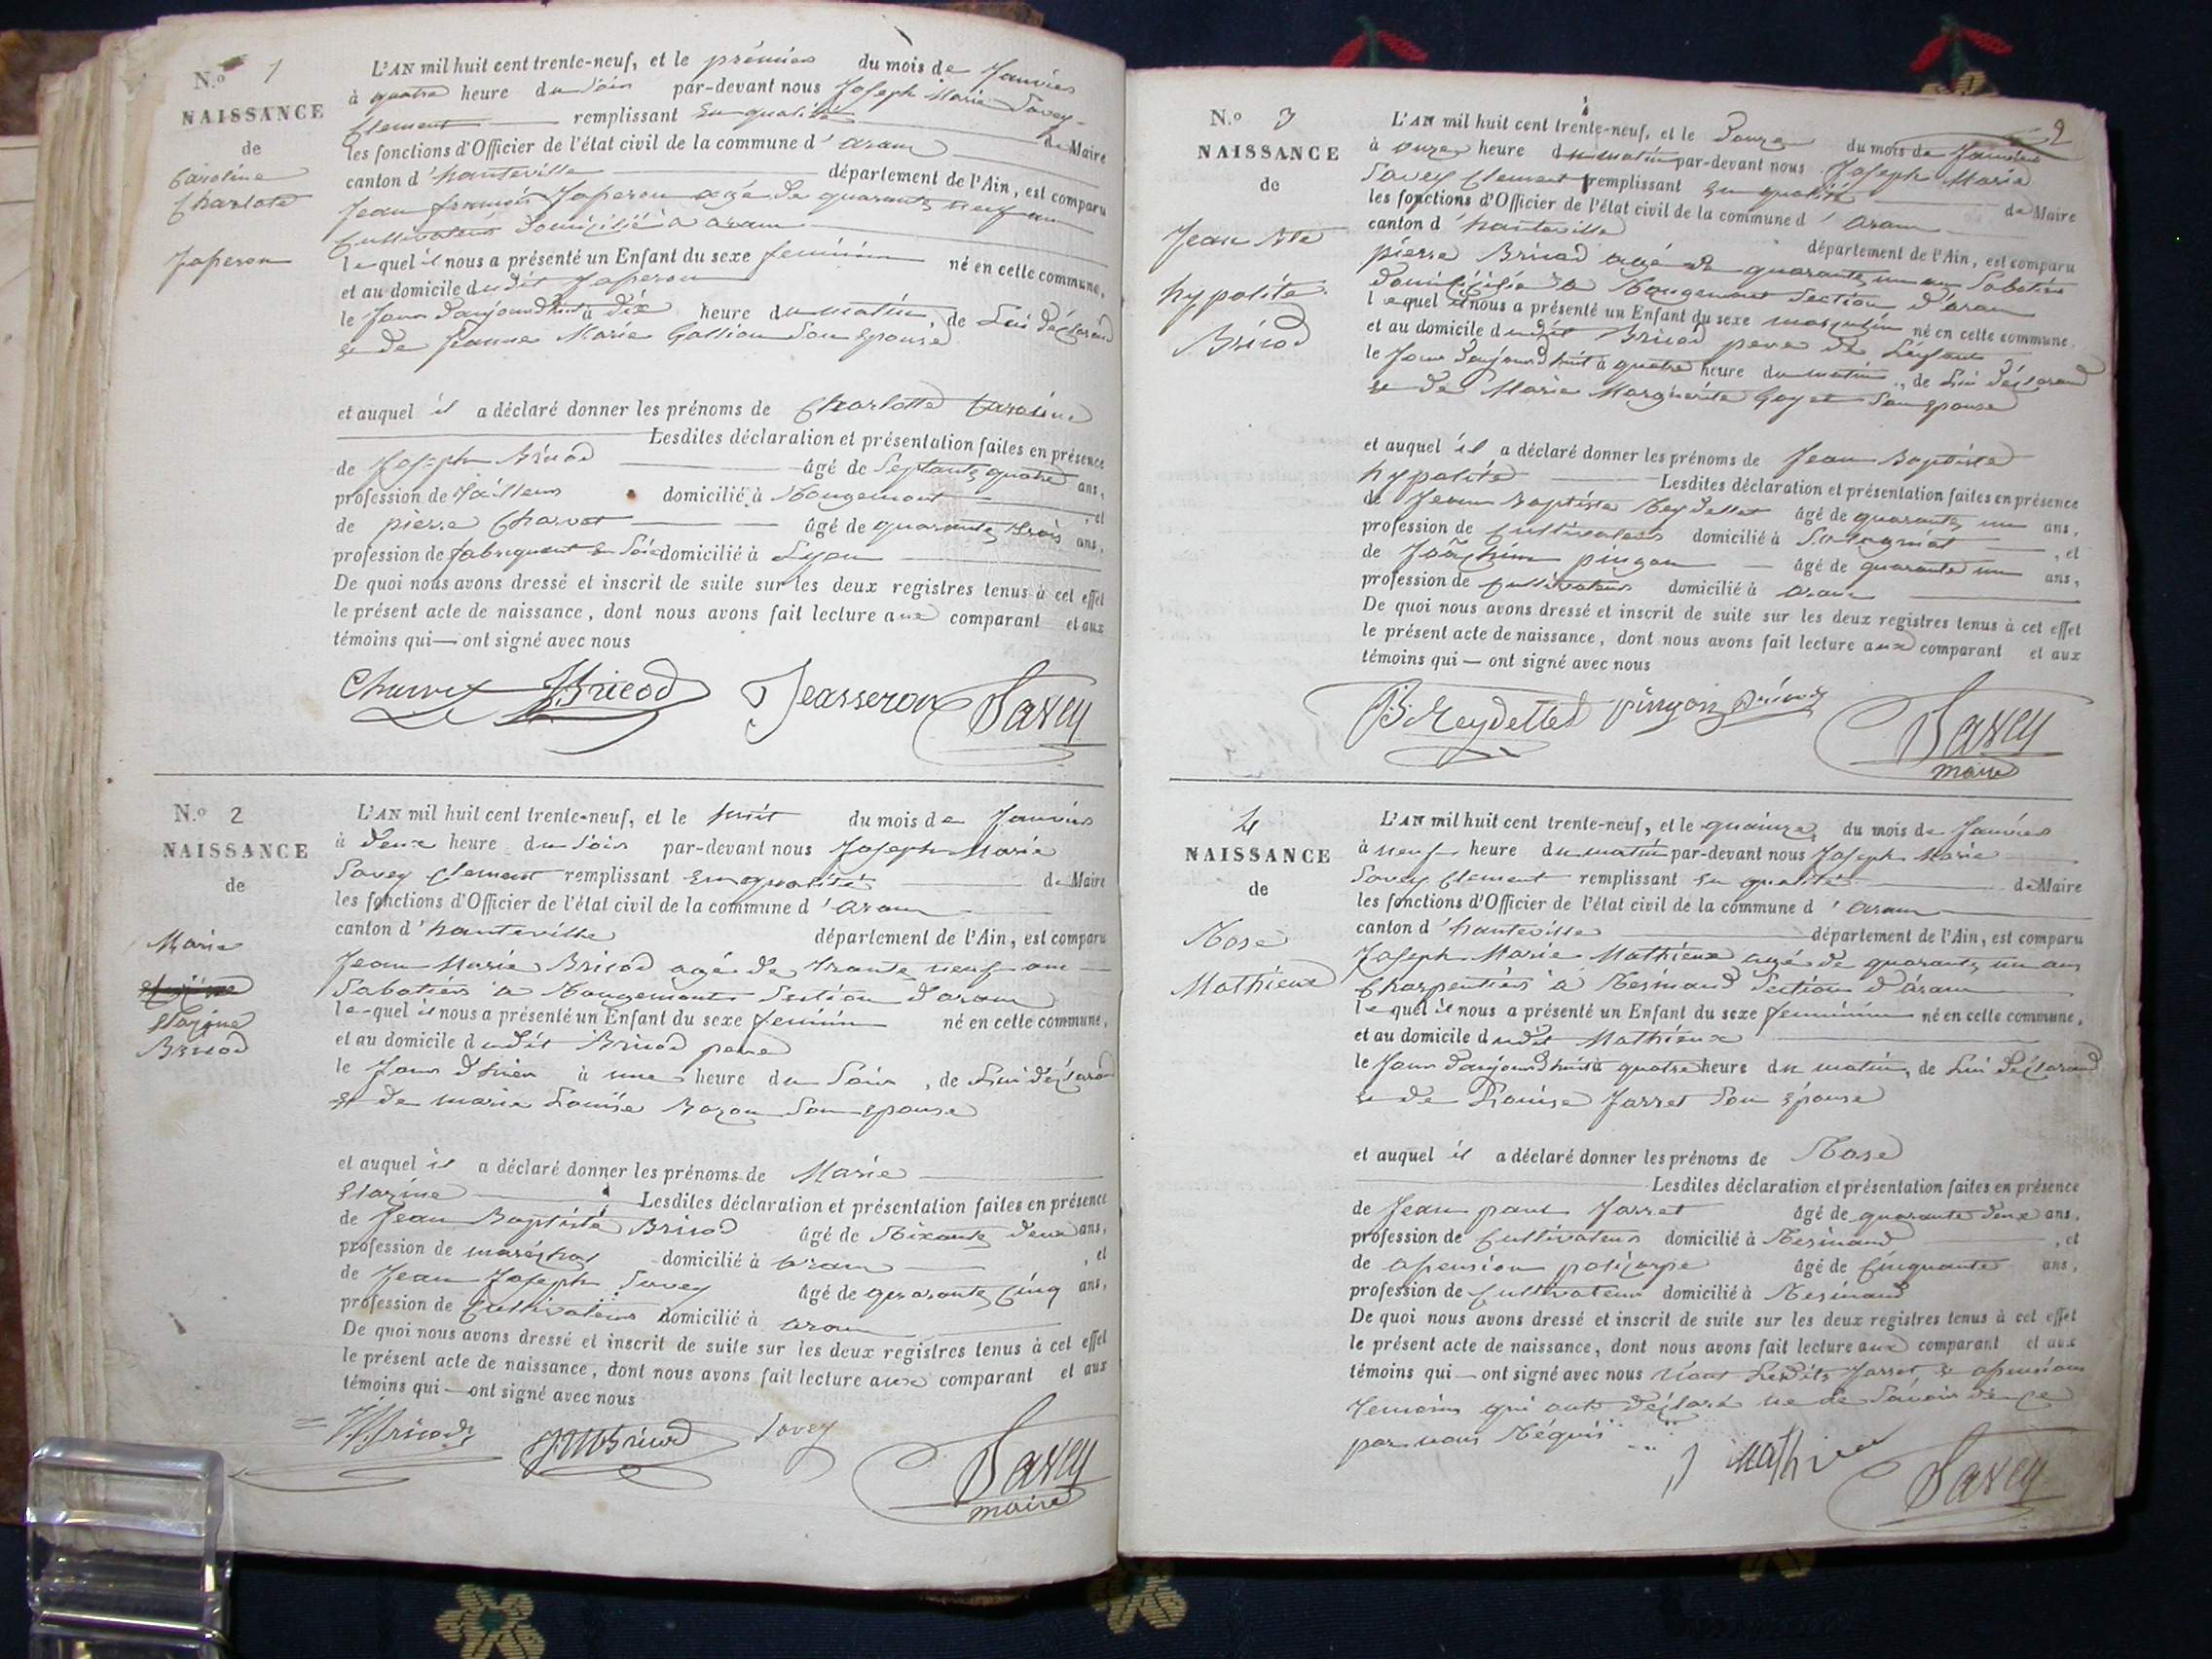 N.o 1
NAISSANCE
de
Caroline
Charlote
Japeron
L'AN mil huit cent trente-neuf, et le prémier du mois de Janvier
à quatre heure du soir par-devant nous Joseph Marie Savey
Clement remplissant En qualité de Maire
les fonctions d'Officier de l'état civil de la commune d' aran
canton d' hauteville département de l'Ain, est comparu
Jean françois Japeron agé de quarante neuf an
Cultivateur Domicilié à aran
lequel il nous a présenté un Enfant du sexe feminin né en cette commune,
et au domicile dudit Japeron
le Jour Daujourdhuit à dix heure du matin, de Lui déclarand
& de Jeanne Marie Gallion Son Epouse
et auquel il a déclaré donner les prénoms de Charlotte Caroline
Lesdites déclaration et présentation faites en présence
de Joseph Bricod âgé de Septante quatre ans,
profession de tailleur domicilié à Rougemont , et
de pierre Charvet âgé de quarante trois ans,
profession de fabriquant en Soie domicilié à Lyon
De quoi nous avons dressé et inscrit de suite sur les deux registres tenus à cet effet
le présent acte de naissance, dont nous avons fait lecture aux comparant et aux
témoins qui — ont signé avec nous
Charvet J Bricod Jeasseron Savey
N.o 2
NAISSANCE
de
Marie
Starine
Bricod
L'AN mil huit cent trente-neuf, et le huit du mois de Janvier
à deux heure du Soir par-devant nous Joseph Marie
Savey Clement remplissant En qualité de Maire
les fonctions d'Officier de l'état civil de la commune d' aran
canton d' hauteville département de l'Ain, est comparu
Jean Marie Bricod agé de trante neuf an
Sabotier à Rougemont Section d'aran
lequel il nous a présenté un Enfant du sexe feminin né en cette commune,
et au domicile dudit Bricod pere
le Jour d'hier à une heure du Soir, de Lui déclarand
& de marie Louise Bozon Son Epouse
et auquel il a déclaré donner les prénoms de Marie
Starine Lesdites déclaration et présentation faites en présence
de Jean Baptiste Bricod âgé de Soixante deux ans,
profession de maréchal domicilié à aran , et
de Jean Joseph Savey âgé de quarante Cinq ans,
profession de Cultivateur domicilié à aran
De quoi nous avons dressé et inscrit de suite sur les deux registres tenus à cet effet
le présent acte de naissance, dont nous avons fait lecture aux comparant et aux
témoins qui — ont signé avec nous
Bricod JM Bricod Savey Savey
maire
2
N.o 3
NAISSANCE
de
Jean Bte
hypolite
Bricod
L'AN mil huit cent trente-neuf, et le Douze du mois de Janvier
à onze heure du matin par-devant nous Joseph Marie
Savey Clement remplissant En qualité de Maire
les fonctions d'Officier de l'état civil de la commune d' aran
canton d' hauteville département de l'Ain, est comparu
pierre Bricod agé de quarante un an Sabotier
Domicilié à Rougemont Section d'aran
lequel il nous a présenté un Enfant du sexe masculin né en cette commune,
et au domicile dudit Bricod pere de L'enfant
le Jour daujourdhuit à quatre heure du matin, de Lui déclarand
& de Marie Marguérite Goyet Son Epouse
et auquel il a déclaré donner les prénoms de Jean Baptiste
hypolité Lesdites déclaration et présentation faites en présence
de Jean Baptiste Reydellet âgé de quarante un ans,
profession de Cultivateur domicilié à , et
de Joachim pingon âgé de quarante un ans,
profession de Cultivateur domicilié à aran
De quoi nous avons dressé et inscrit de suite sur les deux registres tenus à cet effet
le présent acte de naissance, dont nous avons fait lecture aux comparant et aux
témoins qui — ont signé avec nous
JB Reydellet pingon Bricod Savey
maire
4
NAISSANCE
de
Rose
Mathieux
L'AN mil huit cent trente-neuf, et le quainze du mois de Janvier
à neuf heure du matin par-devant nous Joseph Marie
Savey Clement remplissant En qualité de Maire
les fonctions d'Officier de l'état civil de la commune d' aran
canton d' hauteville département de l'Ain, est comparu
Joseph Marie Mathieux agé de quarante un ans
Charpentier à Résinand Section d'aran
lequel il nous a présenté un Enfant du sexe feminin né en cette commune,
et au domicile dudit Mathieux
le Jour daujourdhuit à quatre heure du matin, de Lui déclarand
& de Louise Jarret Son épouse
et auquel il a déclaré donner les prénoms de Rose
Lesdites déclaration et présentation faites en présence
de Jean paul Jarret âgé de quarante deux ans,
profession de Cultivateur domicilié à Résinand , et
de apension policarpe âgé de Cinquante ans,
profession de Cultivateur domicilié à Résinand
De quoi nous avons dressé et inscrit de suite sur les deux registres tenus à cet effet
le présent acte de naissance, dont nous avons fait lecture aux comparant et aux
témoins qui — ont signé avec nous Nont Lesdits Jarret & apension
temoins qui ont déclaré ne le Savoir de ce
par nous Réquis
J Mathieu Savey